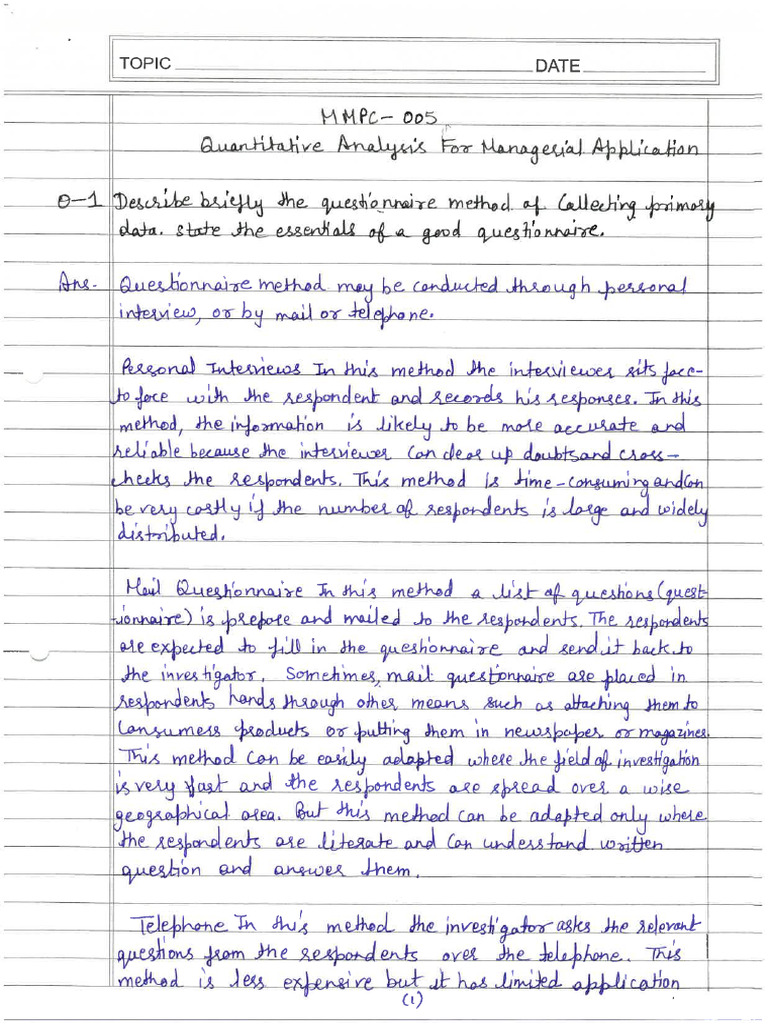 TOPIC DATE
MMPC-005
Quantitative Analysis For Managerial Application
Q-1 Describe briefly the questionnaire method of Collecting primary
data. State the essentials of a good questionnaire.
Ans. Questionnaire method may be conducted through personal
interview, or by mail or telephone.
Personal Interviews In this method the interviewer sits face-
to face with the respondent and records his responses. In this
method, the information is likely to be more accurate and
reliable because the interviewer can clear up doubts and cross-
checks the respondents. This method is time-consuming and can
be very costly if the number of respondents is large and widely
distributed.
Mail Questionnaire In this method a list of questions (quest-
ionnaire) is prepare and mailed to the respondents. The respondents
are expected to fill in the questionnaire and send it back to
the investigator. Sometimes, mail questionnaire are placed in
respondents hands through other means such as attaching them to
Consumess products or putting them in newspaper or magazines.
This method can be easily adapted where the field of investigation
is very fast and the respondents are spread over a wise
geographical area. But this method can be adapted only where
the respondents are literate and can understand written
question and answer them.
Telephone In this method the investigator asks the relevant
questions from the respondents over the telephone. This
method is less expensive but it has limited application
(1)